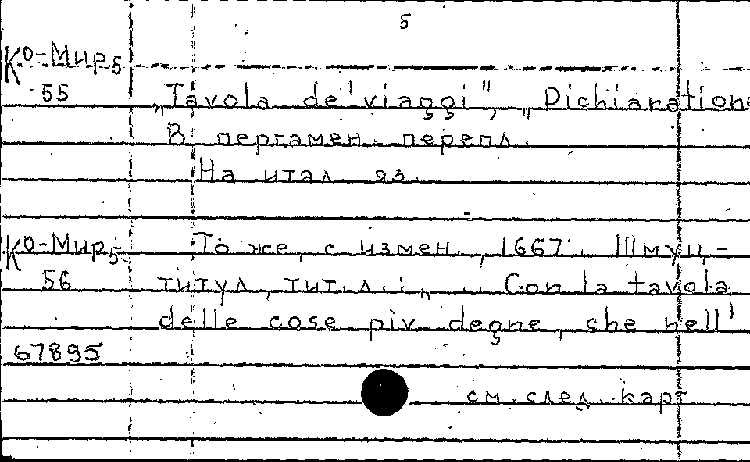 5
Ко-Мир5
55 „Tavola de'viaggi", „Dichiaration
В пергамен. перепл.
На итал. яз.
Ко-Мир5 То же, с измен., 1667. Шмуц-
56 титул, тит. л.: „... Con la tavola
delle cose piv degne, che nell'
67895
см. след. карт